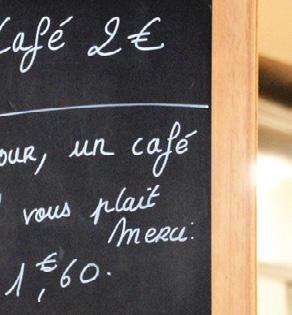 Café 2€
our, un café
vous plait
Merci.
1,€60.